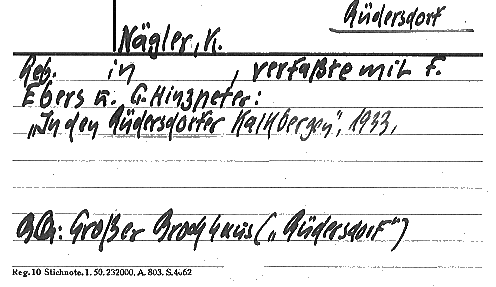 Rüdersdorf
Nägler, K.
Geb. in , verfaßte mit F.
Ebers u. G. Hinzpeter:
„In den Rüdersdorfer Kalkbergen", 1933.
BQu: Großer Brockhaus („Rüdersdorf")
Reg. 10 Stichnote. 1. 50. 232000. A. 803. S. 4062